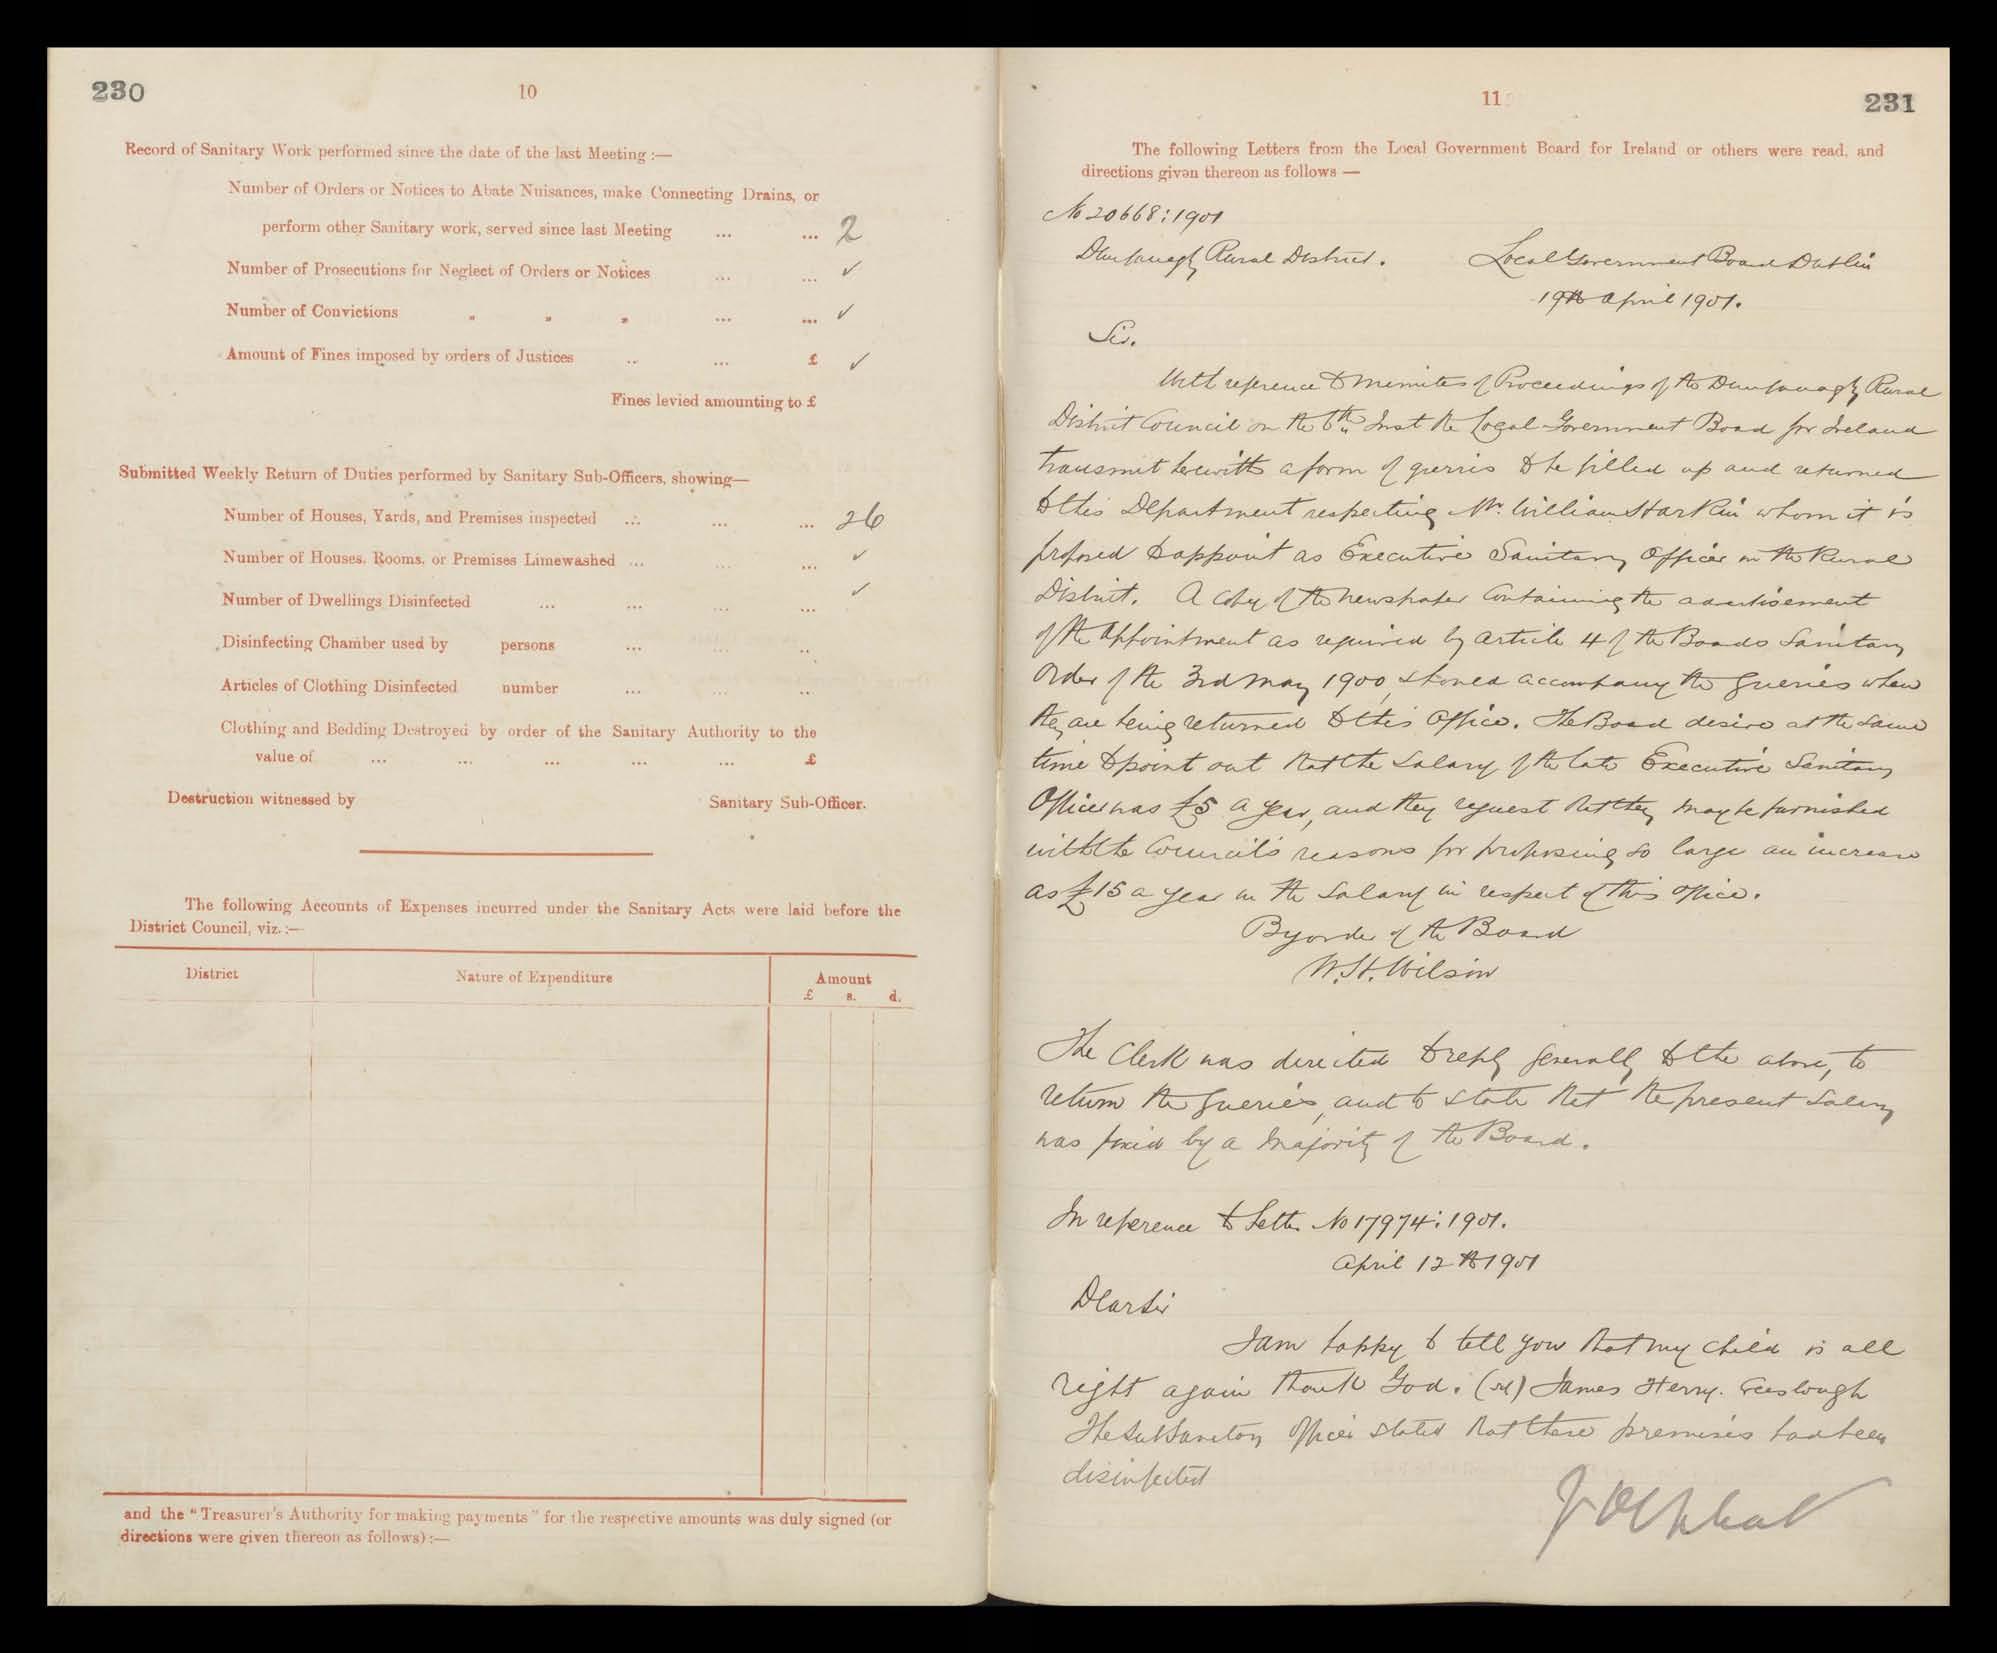 230
10
Record of Sanitary Work performed since the date of the last Meeting :—
Number of Orders or Notices to Abate Nuisances, make Connecting Drains, or
perform other Sanitary work, served since last Meeting ... ... 2
Number of Prosecutions for Neglect of Orders or Notices ... ... ✓
Number of Convictions " " " ... ... ✓
Amount of Fines imposed by orders of Justices .. ... £ ✓
Fines levied amounting to £
Submitted Weekly Return of Duties performed by Sanitary Sub-Officers, showing—
Number of Houses, Yards, and Premises inspected ... ... ... 26
Number of Houses, Rooms, or Premises Limewashed ... ... ... ✓
Number of Dwellings Disinfected ... ... ... ... ✓
Disinfecting Chamber used by persons ... ... ..
Articles of Clothing Disinfected number ... ... ...
Clothing and Bedding Destroyed by order of the Sanitary Authority to the
value of ... ... ... ... ... £
Destruction witnessed by Sanitary Sub-Officer.
The following Accounts of Expenses incurred under the Sanitary Acts were laid before the
District Council, viz. :—
District Nature of Expenditure Amount
£ s. d.
and the "Treasurer's Authority for making payments" for the respective amounts was duly signed (or
directions were given thereon as follows) :—
11
231
The following Letters from the Local Government Board for Ireland or others were read, and
directions given thereon as follows —
No 20668:1901
Dunfanaghy Rural District. Local Government Board Dublin
19th April 1901.
Sir.
With reference to Minutes of Proceedings of the Dunfanaghy Rural
District Council on the 6th Inst the Local Government Board for Ireland
transmit herewith a form of queries to be filled up and returned
to this Department respecting Mr. William Harkin whom it is
proposed to appoint as Executive Sanitary Officer in the Rural
District. A copy of the newspaper containing the advertisement
of the appointment as required by article 4 of the Boards Sanitary
Order of the 3rd May 1900, should accompany the queries when
they are being returned to this Office. The Board desire at the same
time to point out that the Salary of the late Executive Sanitary
Officer was £5 a year, and they request that they may be furnished
with the Council's reasons for proposing so large an increase
as £15 a year in the Salary in respect of this office.
By order of the Board
W.H. Wilson
The Clerk was directed to reply generally to the above, to
return the queries, and to state that the present Salary
was fixed by a Majority of the Board.
In reference to Letter No 17974:1901.
April 12th 1901
Dear Sir
I am happy to tell you that my child is all
right again thank God. (sd) James Herry. Creeslough
The Sub Sanitary Officer stated that these premises had been
disinfected